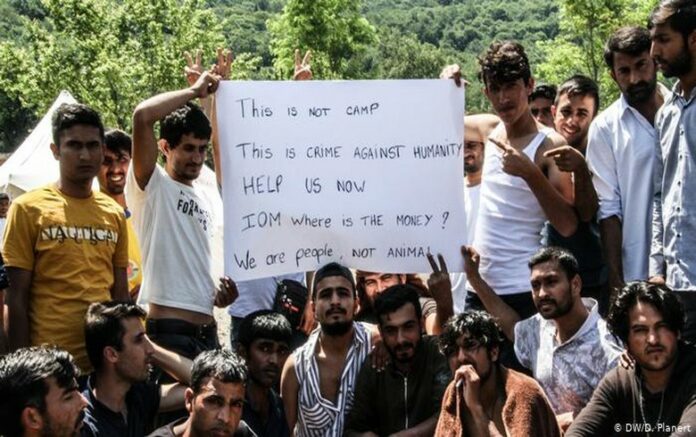 This is not camp
This is crime against humanity
HELP US NOW
IOM Where is THE MONEY?
We are people, NOT ANIMAL
NAUTICA
© DW/D. Planert